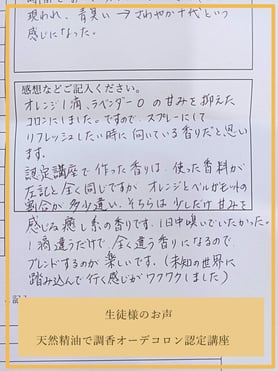 現われ、青臭い → さわやか十代という
感じになった。
感想などご記入ください。
オレンジ1滴、ラベンダー0の甘みを抑えた
コロンにしました。ですので、スプレーにして
リフレッシュしたい時に向いている香りだと思い
ます。
認定講座で作った香りは、使った香料が
左記と全く同じですが オレンジとベルガモットの
割合が多少違い、そちらは少しだけ甘みを
感じる癒し系の香りです。1日中嗅いでいたかった。
1滴違うだけで、全く違う香りになるので
ブレンドするのが楽しいです。(未知の世界に
踏み込んで行く感じがワクワクしました)
生徒様のお声
天然精油で調香オーデコロン認定講座